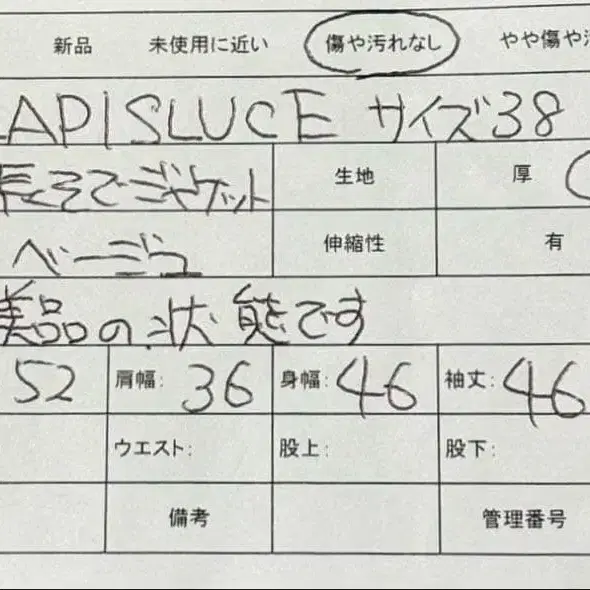 新品 未使用に近い 傷や汚れなし やや傷や汚
LAPISLUCE サイズ38
長そでジャケット 生地 厚
ベージュ 伸縮性 有
美品の状態です
52 肩幅: 36 身幅: 46 袖丈: 46
ウエスト: 股上: 股下:
備考 管理番号